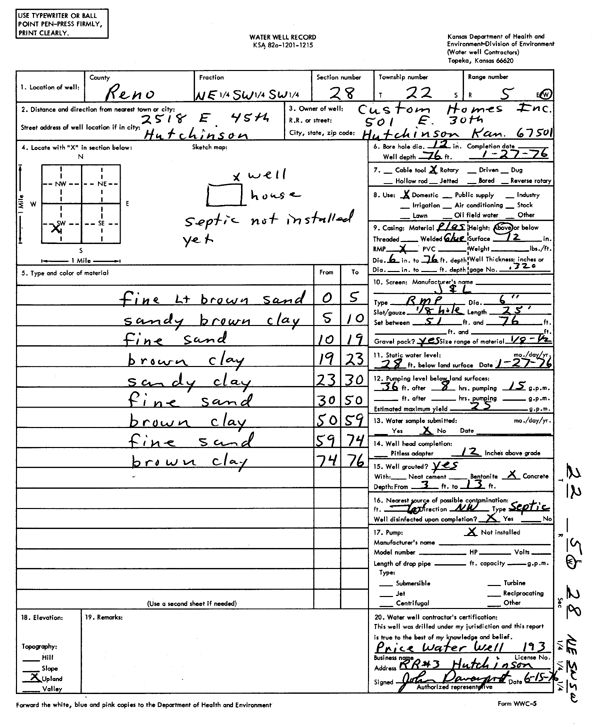 USE TYPEWRITER OR BALL
POINT PEN-PRESS FIRMLY,
PRINT CLEARLY.
WATER WELL RECORD
KSA 82a-1201-1215
Kansas Department of Health and
Environment-Division of Environment
(Water well Contractors)
Topeka, Kansas 66620
1. Location of well: County Reno Fraction NE 1/4 SW 1/4 SW 1/4 Section number 28 Township number T 22 S Range number R 5 E/W
2. Distance and direction from nearest town or city: 2518 E. 45th
Street address of well location if in city: Hutchinson
3. Owner of well: Custom Homes Inc.
R.R. or street: 501 E. 30th
City, state, zip code: Hutchinson Kan. 67501
4. Locate with "X" in section below:
N
NW NE
W E
SW SE
X
S
1 Mile
1 Mile
Sketch map:
X well
house
septic not installed
yet
5. Type and color of material From To
fine Lt brown sand 0 5
sandy brown clay 5 10
fine sand 10 19
brown clay 19 23
sandy clay 23 30
fine sand 30 50
brown clay 50 59
fine sand 59 74
brown clay 74 76
(Use a second sheet if needed)
6. Bore hole dia. 12 in. Completion date
Well depth 76 ft. 1-27-76
7. Cable tool X Rotary Driven Dug
Hollow rod Jetted Bored Reverse rotary
8. Use: X Domestic Public supply Industry
Irrigation Air conditioning Stock
Lawn Oil field water Other
9. Casing: Material Plas Height: Above or below
Threaded Welded Glue Surface 12 in.
RMP X PVC Weight lbs./ft.
Dia. 6 in. to 76 ft. depth Wall Thickness: inches or
Dia. in. to ft. depth gage No. .320
10. Screen: Manufacturer's name
J & L
Type RMP Dia. 6"
Slot/gauze 1/8 hole Length 25'
Set between 51 ft. and 76 ft.
ft. and ft.
Gravel pack? yes Size range of material 1/8-1/2
11. Static water level: mo./day/yr.
28 ft. below land surface Date 1-27-76
12. Pumping level below land surfaces:
36 ft. after 8 hrs. pumping 15 g.p.m.
ft. after hrs. pumping g.p.m.
Estimated maximum yield 25 g.p.m.
13. Water sample submitted: mo./day/yr.
Yes X No Date
14. Well head completion:
Pitless adapter 12 Inches above grade
15. Well grouted? yes
With: Neat cement Bentonite X Concrete
Depth: From 3 ft. to 13 ft.
16. Nearest source of possible contamination:
ft. Direction NW Type Septic
Well disinfected upon completion? X Yes No
17. Pump: X Not installed
Manufacturer's name
Model number HP Volts
Length of drop pipe ft. capacity g.p.m.
Type:
Submersible Turbine
Jet Reciprocating
Centrifugal Other
18. Elevation:
Topography:
Hill
Slope
X Upland
Valley
19. Remarks:
20. Water well contractor's certification:
This well was drilled under my jurisdiction and this report
is true to the best of my knowledge and belief.
Price Water Well 193
Business name License No.
Address RR#3 Hutchinson
Signed John Davenport Date 6-15-76
Authorized representative
Forward the white, blue and pink copies to the Department of Health and Environment
Form WWC-5
T 22 R 5 W Sec 28 NE SW SW 1/4 1/4 1/4